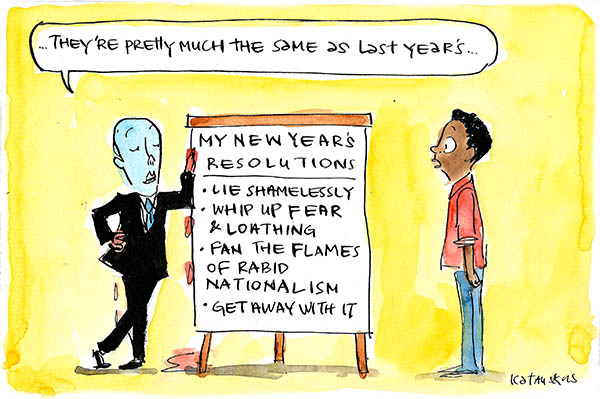 ...THEY'RE PRETTY MUCH THE SAME AS LAST YEAR'S...
MY NEW YEAR'S
RESOLUTIONS
• LIE SHAMELESSLY
• WHIP UP FEAR
& LOATHING
• FAN THE FLAMES
OF RABID
NATIONALISM
• GET AWAY WITH IT
KATAUSKAS